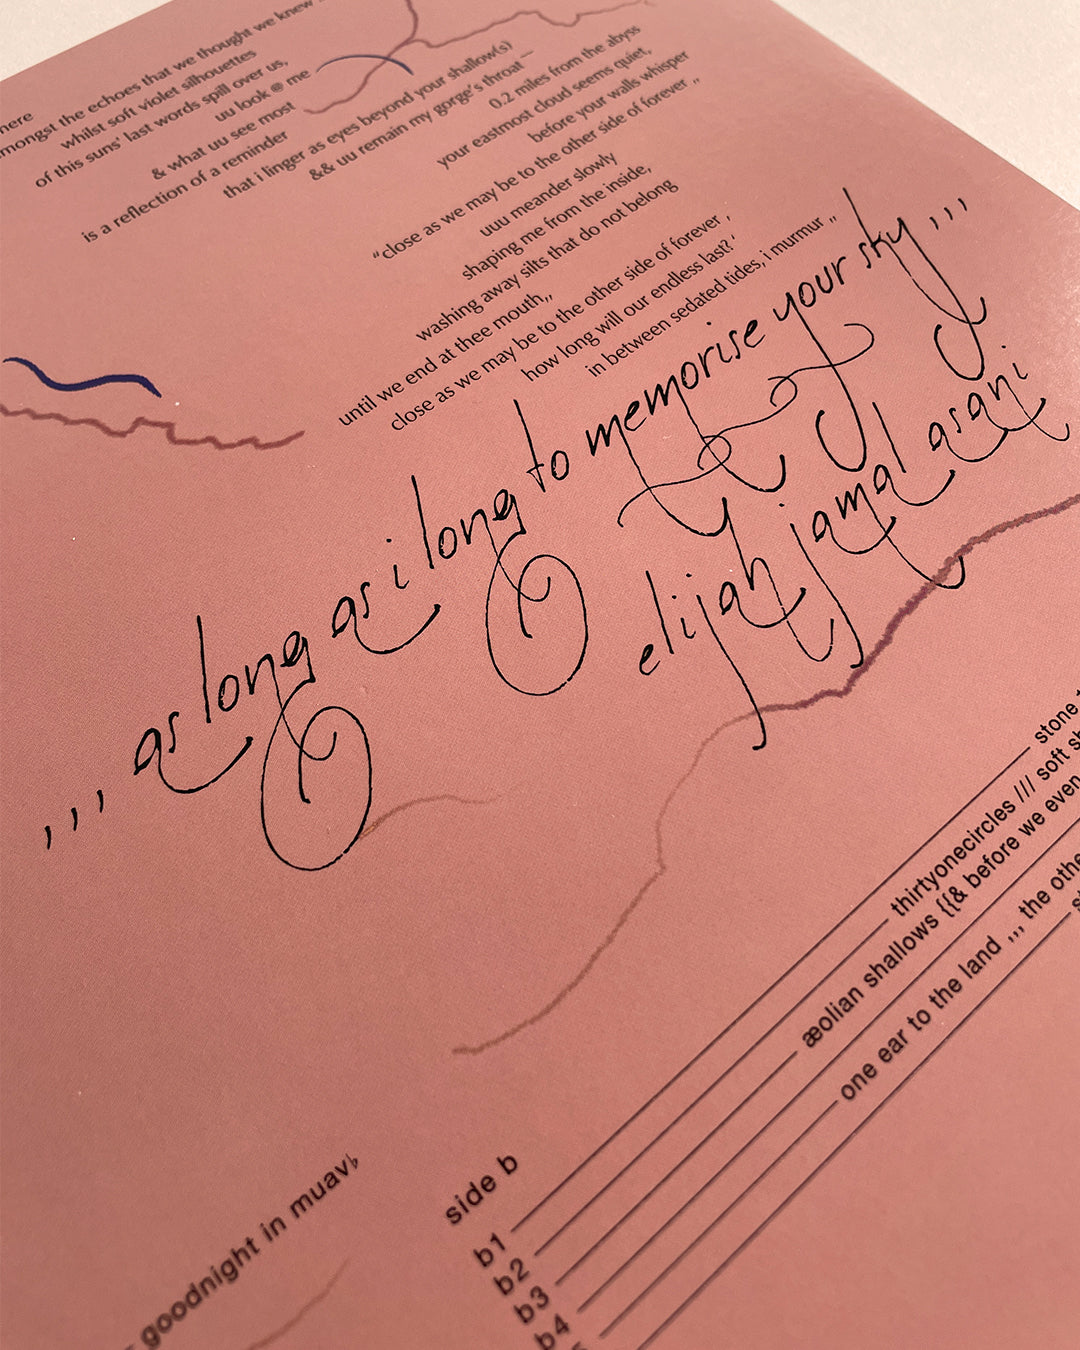 here
mongst the echoes that we thought we knew
whilst soft violet silhouettes
of this suns' last words spill over us,
uu look @ me
& what uu see most
is a reflection of a reminder
that i linger as eyes beyond your shallow(s)
&& uu remain my gorge's throat —
0.2 miles from the abyss
your eastmost cloud seems quiet,
before your walls whisper
"close as we may be to the other side of forever „
uuu meander slowly
shaping me from the inside,
washing away silts that do not belong
until we end at thee mouth,,
close as we may be to the other side of forever ,
how long will our endless last?'
in between sedated tides, i murmur „
,,, as long as i long to memorise your sky ,,,
elijah jamal asani
stone
thirtyonecircles /// soft s
æolian shallows {{& before we even
one ear to the land ,,, the othe
s
side b
b1
b2
b3
b4
goodnight in muav♭